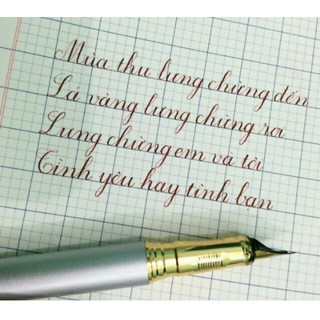 Mùa thu lưng chừng đến
Lá vàng lưng chừng ra
Lưng chừng em và tôi
Tình yêu hay tình bạn